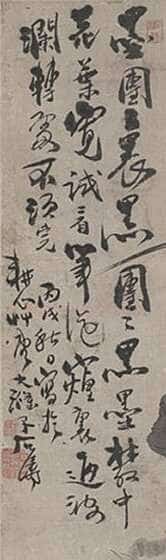 墨團〻裏黑團〻黑墨叢中
花葉寬試看筆從煙裏過波
瀾轉處不須完
丙戌秋日寫於
耕心艸堂大滌子石濤